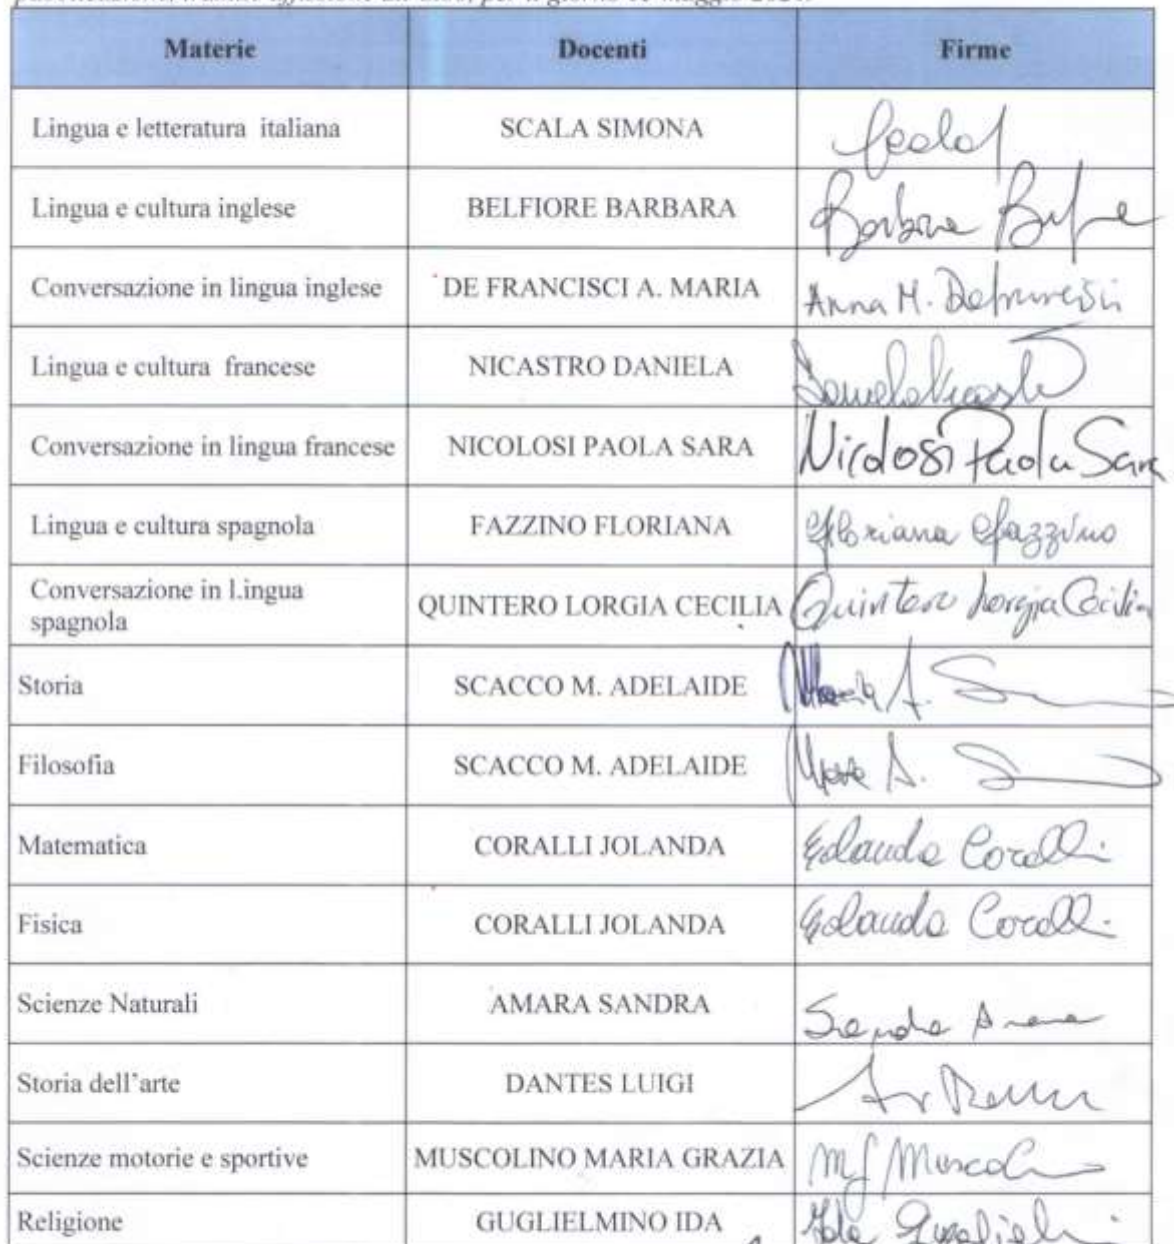 Materie Docenti Firme
Lingua e letteratura italiana SCALA SIMONA Scala S
Lingua e cultura inglese BELFIORE BARBARA Barbara
Conversazione in lingua inglese DE FRANCISCI A. MARIA Anna M. Defrancisci
Lingua e cultura francese NICASTRO DANIELA Daniela Nicastro
Conversazione in lingua francese NICOLOSI PAOLA SARA Nicolosi Paola Sara
Lingua e cultura spagnola FAZZINO FLORIANA Floriana Fazzino
Conversazione in Lingua
spagnola QUINTERO LORGIA CECILIA Quintero Lorgia Cecilia
Storia SCACCO M. ADELAIDE Maria A. S
Filosofia SCACCO M. ADELAIDE Maria A. S
Matematica CORALLI JOLANDA Iolanda Coralli
Fisica CORALLI JOLANDA Iolanda Coralli
Scienze Naturali AMARA SANDRA Sandra Amara
Storia dell'arte DANTES LUIGI
Scienze motorie e sportive MUSCOLINO MARIA GRAZIA
Religione GUGLIELMINO IDA Ida